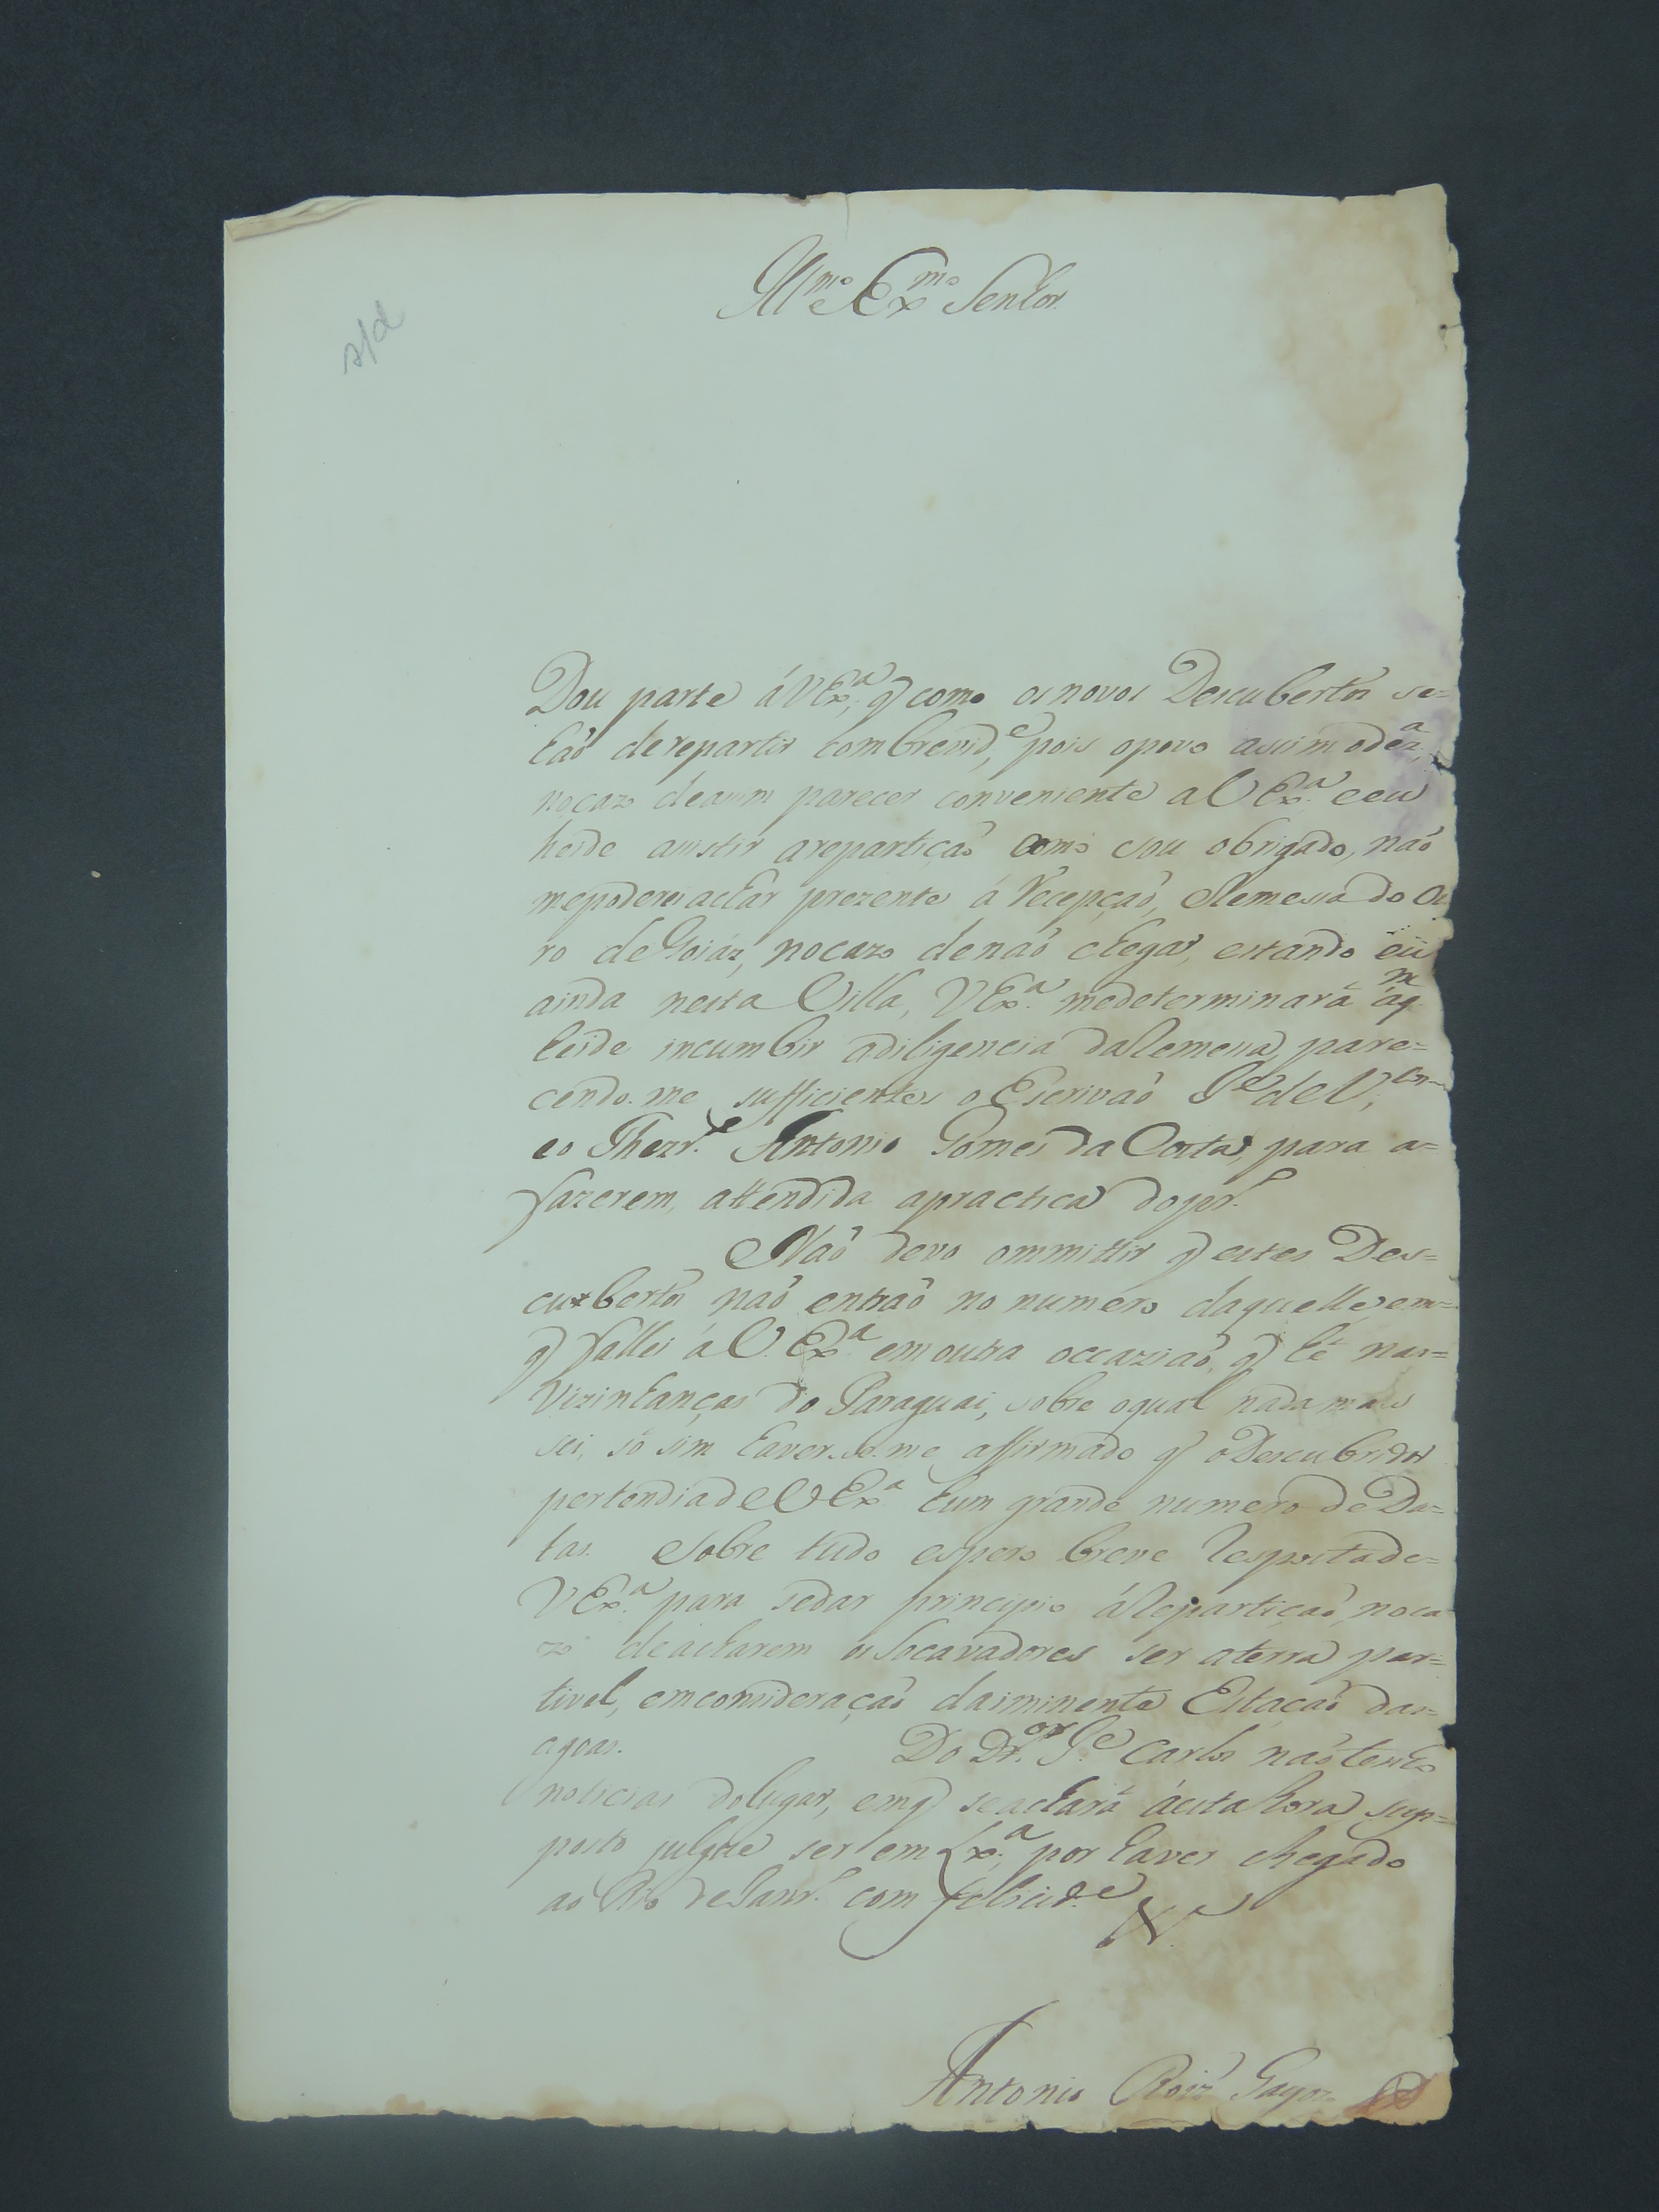 Ill.mo e Ex.mo Senhor
s/d
Dou parte á V Ex.a, q como os novos Descubertos se-
hão de repartir com brevid.e, pois o povo assim o dez.a,
no cazo de assim parecer conveniente a V Ex.a e eu
heide assistir a repartição como sou obrigado, não
me poderei achar prezente á Recepção, e Remessa do Ou
ro de Goiáz, no cazo de não chegar, estando eu
ainda nesta Villa, V Ex.a me determinará á q.m
heide incumbir a diligencia da Remessa, pare=
cendo-me sufficientes o Escrivão
e o Thezr.o Antonio Gomes da Costa, para a=
fazerem, attendida a practica do pr.o
Não devo ommittir q estes Des=
cubertos não entrão no numero daquelle, em=
q fallei á V. Ex.a em outra occazião, q hé nas=
Vizinhanças do Paraguai, sobre o qual nada mais
sei, só sim haver-se-me affirmado q o Descubridor
pertendia de V Ex.a hum grande numero de Da=
tas. Sobre tudo espero breve Resposta de=
V Ex.a para se dar principio á Repartição, no ca
zo de acharem os Socavadores ser a terra par=
tivel, em consideração da iminente Estação das=
agoas. Do D.or J.e Carlos não tenho
noticias do lugar, em q se achará á esta hora, sup=
posto julgue ser em Lx.a, por haver chegado
ao Rio de Janr.o com felicid.e
Antonio Roiz Gayozo